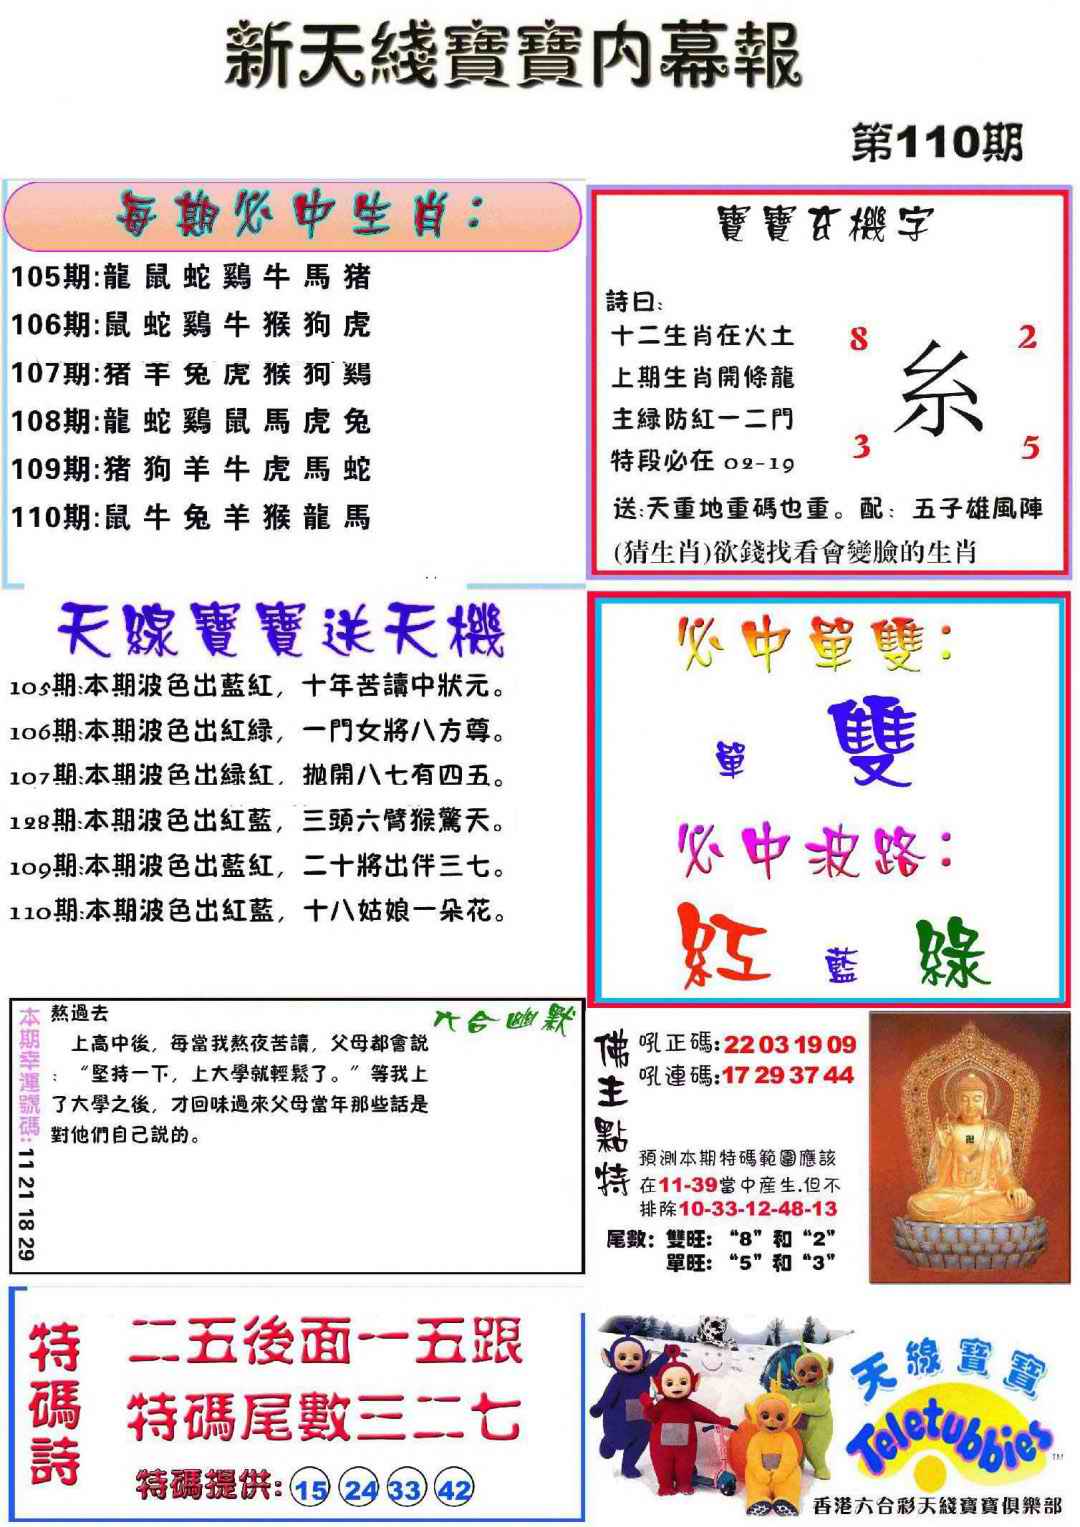 新天綫寶寶内幕報
第110期
每期必中生肖:
105期:龍 鼠 蛇 鷄 牛 馬 猪
106期:鼠 蛇 鷄 牛 猴 狗 虎
107期:猪 羊 兔 虎 猴 狗 鷄
108期:龍 蛇 鷄 鼠 馬 虎 兔
109期:猪 狗 羊 牛 虎 馬 蛇
110期:鼠 牛 兔 羊 猴 龍 馬
寶寶玄機字
詩曰:
十二生肖在火土
上期生肖開條龍
主緑防紅一二門
特段必在 02-19
8
2
糸
3
5
送:天重地重碼也重。配: 五子雄風陣
(猜生肖)欲錢找看會變臉的生肖
天線寶寶送天機
105期:本期波色出藍紅, 十年苦讀中狀元。
106期:本期波色出紅緑, 一門女將八方尊。
107期:本期波色出緑紅, 抛開八七有四五。
128期:本期波色出紅藍, 三頭六臂猴驚天。
109期:本期波色出藍紅, 二十將出伴三七。
110期:本期波色出紅藍, 十八姑娘一朵花。
必中單雙:
單 雙
必中波路:
紅 藍 綠
本期幸運號碼: 11 21 18 29
六合幽默
熬過去
上高中後, 每當我熬夜苦讀, 父母都會説
: “堅持一下, 上大學就輕鬆了。”等我上
了大學之後, 才回味過來父母當年那些話是
對他們自己説的。
佛主點特
吼正碼:22 03 19 09
吼連碼:17 29 37 44
預測本期特碼範圍應該
在11-39當中産生.但不
排除10-33-12-48-13
尾數: 雙旺: “8”和“2”
單旺: “5”和“3”
特碼詩
二五後面一五跟
特碼尾數三二七
特碼提供: 15 24 33 42
天線寶寶
Teletubbies
TM
香港六合彩天綫寶寶俱樂部